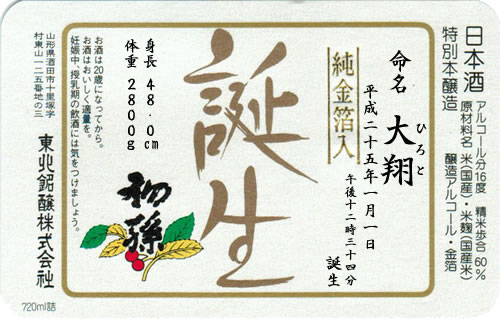 日本酒
特別本醸造
アルコール分16度　精米歩合 60%
原材料名 米(国産)・米麹(国産米)
醸造アルコール・金箔
命名 大翔
ひろと
平成二十五年一月一日
午後十二時三十四分
誕生
純金箔入
誕生
初孫
身長 48.0cm
体重 2800g
お酒は20歳になってから。
お酒はおいしく適量を。
妊娠中、授乳期の飲酒には気をつけましょう。
東北銘醸株式会社
山形県酒田市十里塚字
村東山一二五番地の三
720ml詰